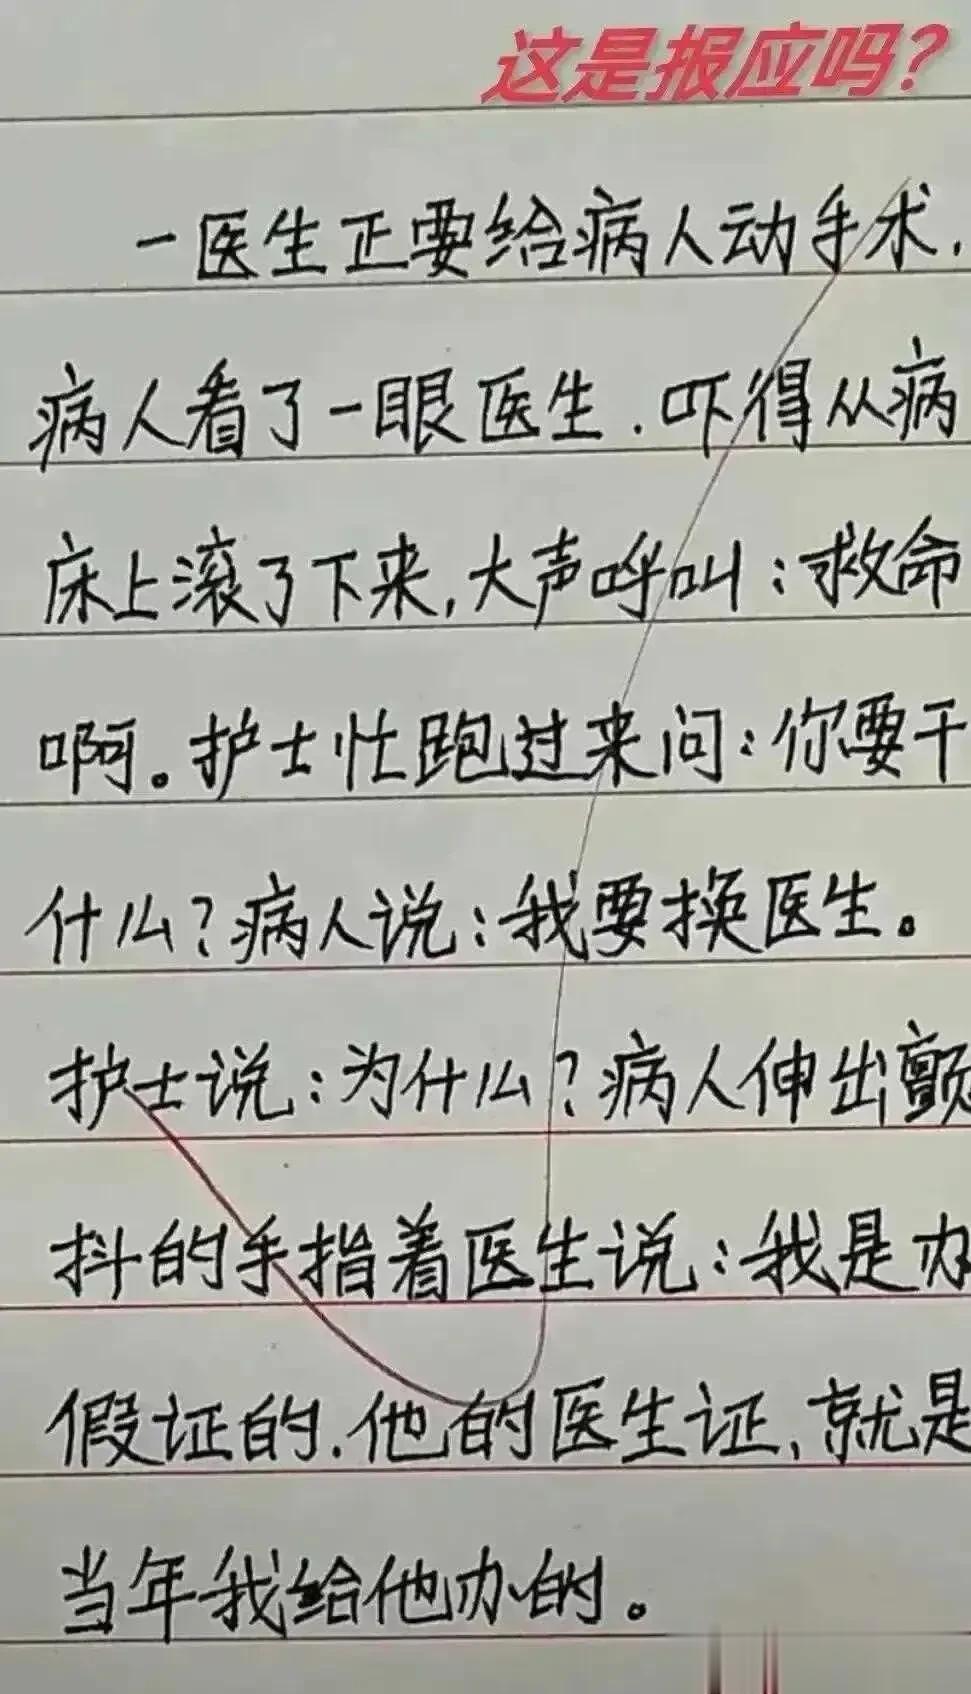 这是报应吗？
一医生正要给病人动手术，
病人看了一眼医生．吓得从病
床上滚了下来，大声呼叫：救命
啊。护士忙跑过来问：你要干
什么？病人说：我要换医生。
护士说：为什么？病人伸出颤
抖的手指着医生说：我是办
假证的．他的医生证、就是
当年我给他办的。